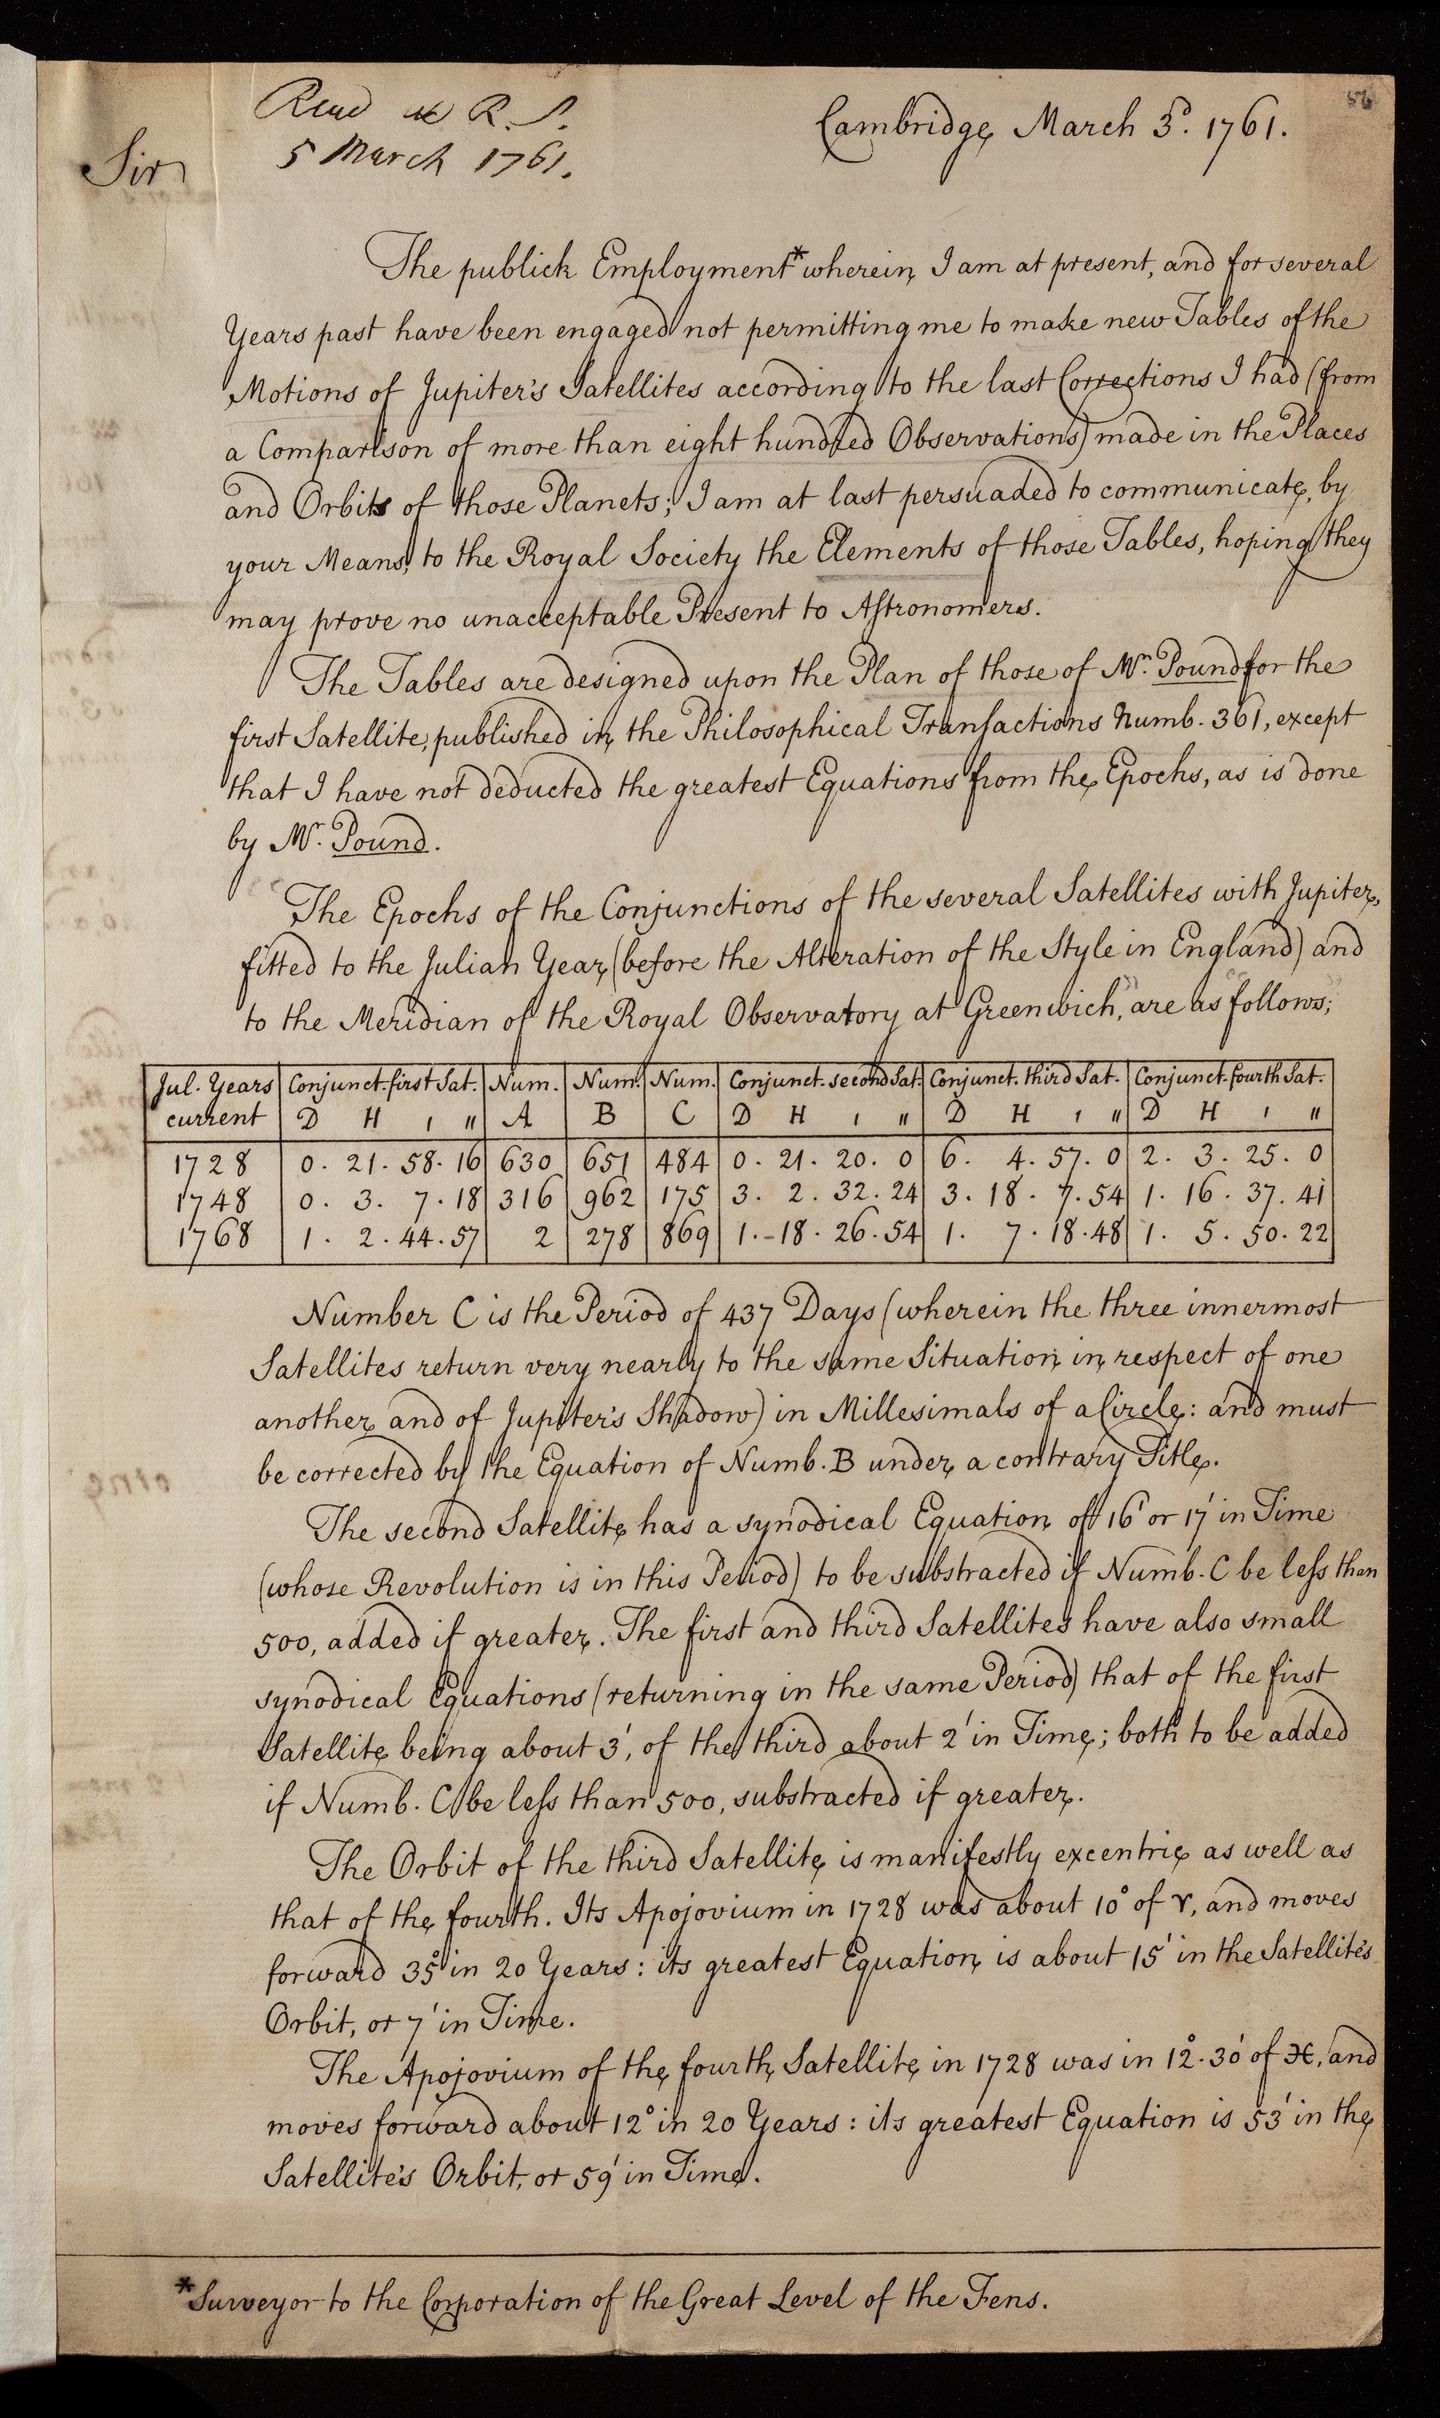 56
Read at R. S.
5 March 1761.
Cambridge March 3.d 1761.
Sir
The publick Employment* wherein I am at present, and for several
Years past have been engaged not permitting me to make new Tables of the
Motions of Jupiter's Satellites according to the last Corrections I had (from
a Comparison of more than eight hundred Observations) made in the Places
and Orbits of those Planets; I am at last persuaded to communicate, by
your Means, to the Royal Society the Elements of those Tables, hoping they
may prove no unacceptable Present to Astronomers.
The Tables are designed upon the Plan of those of Mr. Pound for the
first Satellite, published in the Philosophical Transactions Numb. 361, except
that I have not deducted the greatest Equations from the Epochs, as is done
by Mr. Pound.
The Epochs of the Conjunctions of the several Satellites with Jupiter,
fitted to the Julian Year (before the Alteration of the Style in England) and
to the Meridian of the Royal Observatory at Greenwich, are as follows;
Jul. Years Conjunct. first Sat. Num. Num. Num. Conjunct. second Sat. Conjunct. third Sat. Conjunct. fourth Sat.
current D H ' " A B C D H ' " D H ' " D H ' "
1728 0. 21. 58. 16 630 651 484 0. 21. 20. 0 6. 4. 57. 0 2. 3. 25. 0
1748 0. 3. 7. 18 316 962 175 3. 2. 32. 24 3. 18. 7. 54 1. 16. 37. 41
1768 1. 2. 44. 57 2 278 869 1. 18. 26. 54 1. 7. 18. 48 1. 5. 50. 22
Number C is the Period of 437 Days (wherein the three innermost
Satellites return very nearly to the same Situation in respect of one
another and of Jupiter's Shadow) in Millesimals of a Circle: and must
be corrected by the Equation of Numb. B under a contrary Title.
The second Satellite has a synodical Equation of 16' or 17' in Time
(whose Revolution is in this Period) to be substracted if Numb. C be less than
500, added if greater. The first and third Satellites have also small
synodical Equations (returning in the same Period) that of the first
Satellite being about 3', of the third about 2' in Time; both to be added
if Numb. C be less than 500, substracted if greater.
The Orbit of the third Satellite is manifestly excentric as well as
that of the fourth. Its Apojovium in 1728 was about 10° of ♈, and moves
forward 35° in 20 Years: its greatest Equation is about 15' in the Satellite's
Orbit, or 7' in Time.
The Apojovium of the fourth Satellite in 1728 was in 12°. 30' of ♓, and
moves forward about 12° in 20 Years: its greatest Equation is 53' in the
Satellite's Orbit, or 59' in Time.
*Surveyor to the Corporation of the Great Level of the Fens.